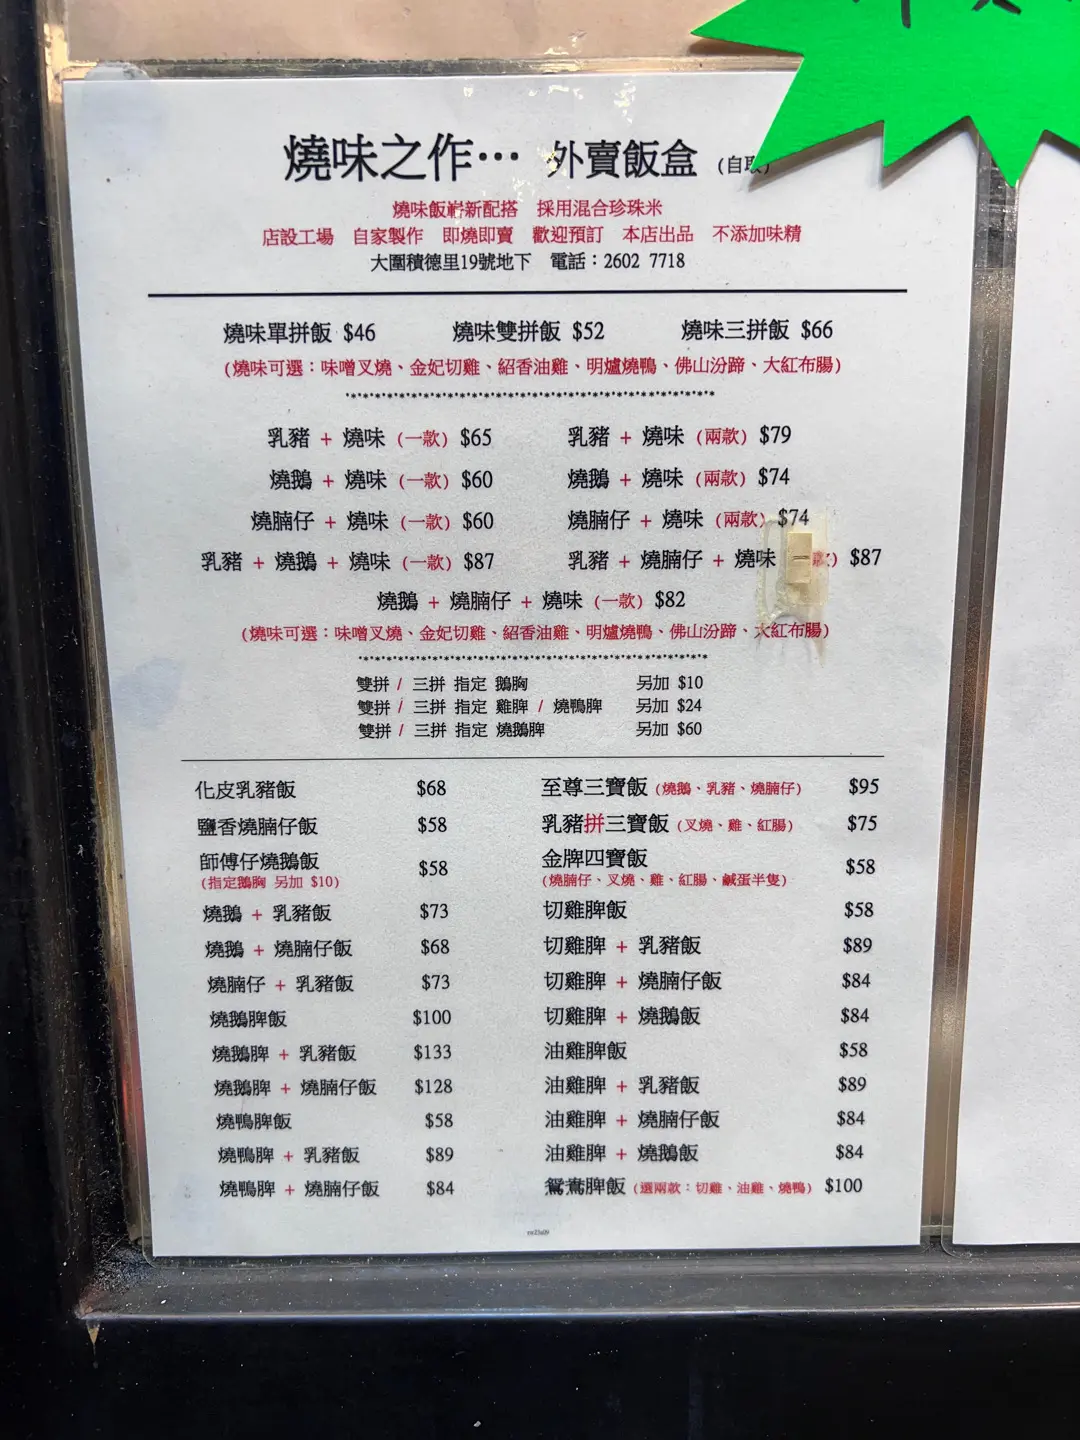 燒味之作… 外賣飯盒 (自取)
燒味飯嶄新配搭 採用混合珍珠米
店設工場 自家製作 即燒即賣 歡迎預訂 本店出品 不添加味精
大圍積德里19號地下 電話：2602 7718
燒味單拼飯 $46 燒味雙拼飯 $52 燒味三拼飯 $66
(燒味可選：味噌叉燒、金妃切雞、紹香油雞、明爐燒鴨、佛山汾蹄、大紅布腸)
乳豬 + 燒味 (一款) $65 乳豬 + 燒味 (兩款) $79
燒鵝 + 燒味 (一款) $60 燒鵝 + 燒味 (兩款) $74
燒腩仔 + 燒味 (一款) $60 燒腩仔 + 燒味 (兩款) $74
乳豬 + 燒鵝 + 燒味 (一款) $87 乳豬 + 燒腩仔 + 燒味 一款) $87
燒鵝 + 燒腩仔 + 燒味 (一款) $82
(燒味可選：味噌叉燒、金妃切雞、紹香油雞、明爐燒鴨、佛山汾蹄、大紅布腸)
雙拼 / 三拼 指定 鵝胸 另加 $10
雙拼 / 三拼 指定 雞脾 / 燒鴨脾 另加 $24
雙拼 / 三拼 指定 燒鵝脾 另加 $60
化皮乳豬飯 $68
鹽香燒腩仔飯 $58
師傅仔燒鵝飯 $58
(指定鵝胸 另加 $10)
燒鵝 + 乳豬飯 $73
燒鵝 + 燒腩仔飯 $68
燒腩仔 + 乳豬飯 $73
燒鵝脾飯 $100
燒鵝脾 + 乳豬飯 $133
燒鵝脾 + 燒腩仔飯 $128
燒鴨脾飯 $58
燒鴨脾 + 乳豬飯 $89
燒鴨脾 + 燒腩仔飯 $84
至尊三寶飯 (燒鵝、乳豬、燒腩仔) $95
乳豬拼三寶飯 (叉燒、雞、紅腸) $75
金牌四寶飯 $58
(燒腩仔、叉燒、雞、紅腸、鹹蛋半隻)
切雞脾飯 $58
切雞脾 + 乳豬飯 $89
切雞脾 + 燒腩仔飯 $84
切雞脾 + 燒鵝飯 $84
油雞脾飯 $58
油雞脾 + 乳豬飯 $89
油雞脾 + 燒腩仔飯 $84
油雞脾 + 燒鵝飯 $84
鴛鴦脾飯 (選兩款：切雞、油雞、燒鴨) $100